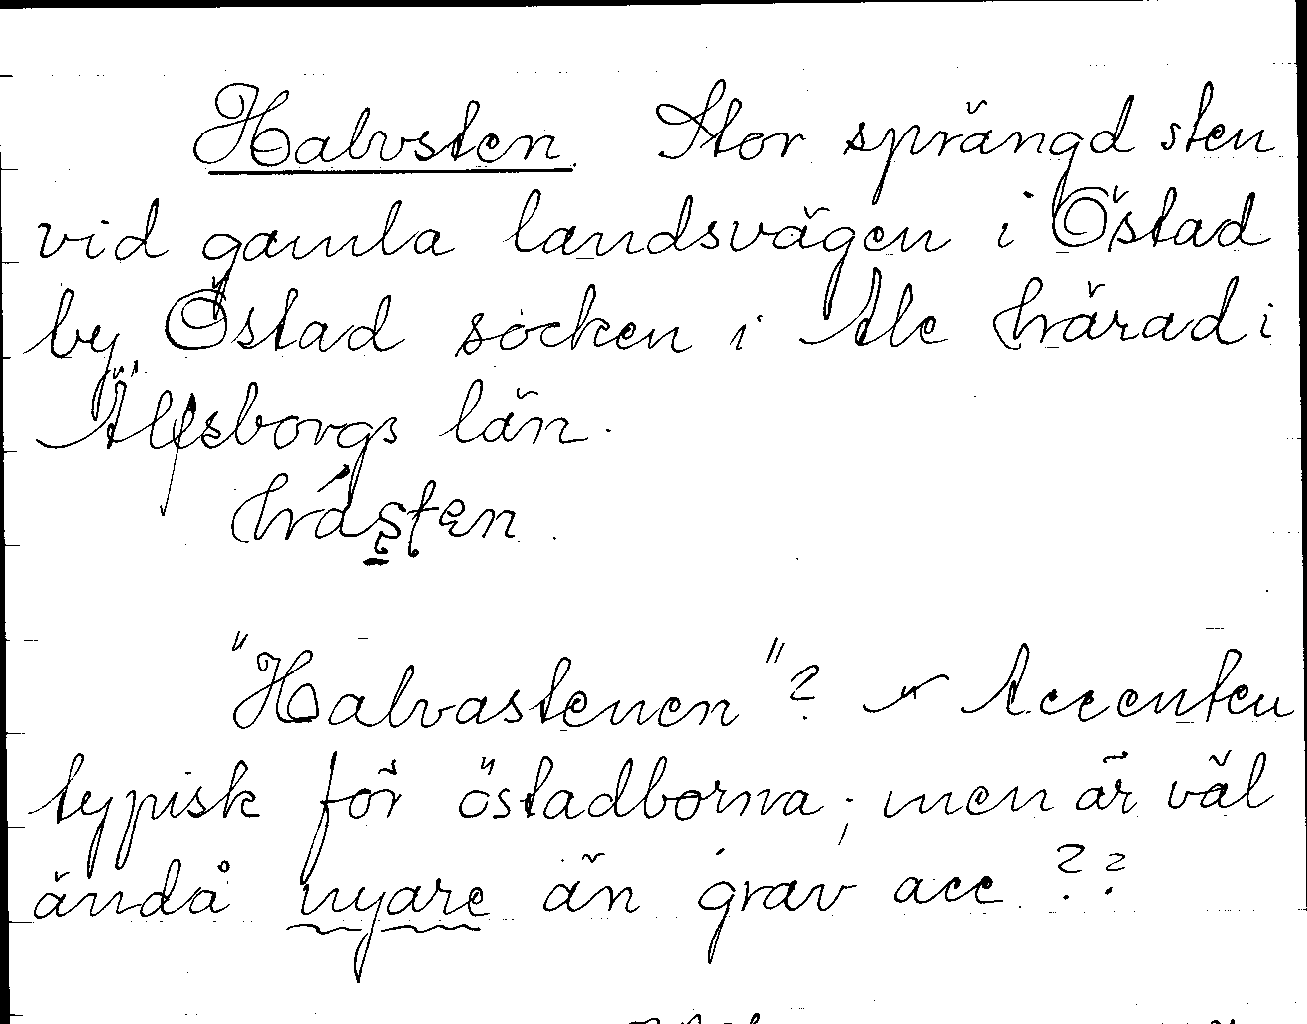 Halvsten. Stor sprängd sten
vid gamla landsvägen i Östad
by, Östad socken i Ale härad i
Älfsborgs län.
"Halvastenen"? Accenten
typisk för östadborna; men är väl
ändå nyare än grav acc ??